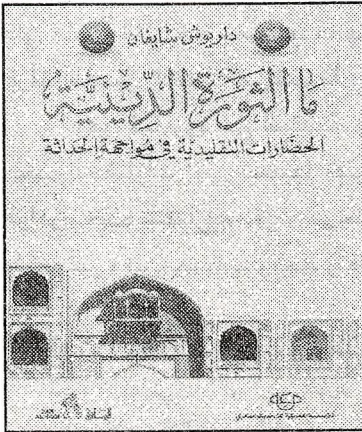 داريوش شايغان
ما الثورة الدينية
الحضارات التقليدية في مواجهة الحداثة